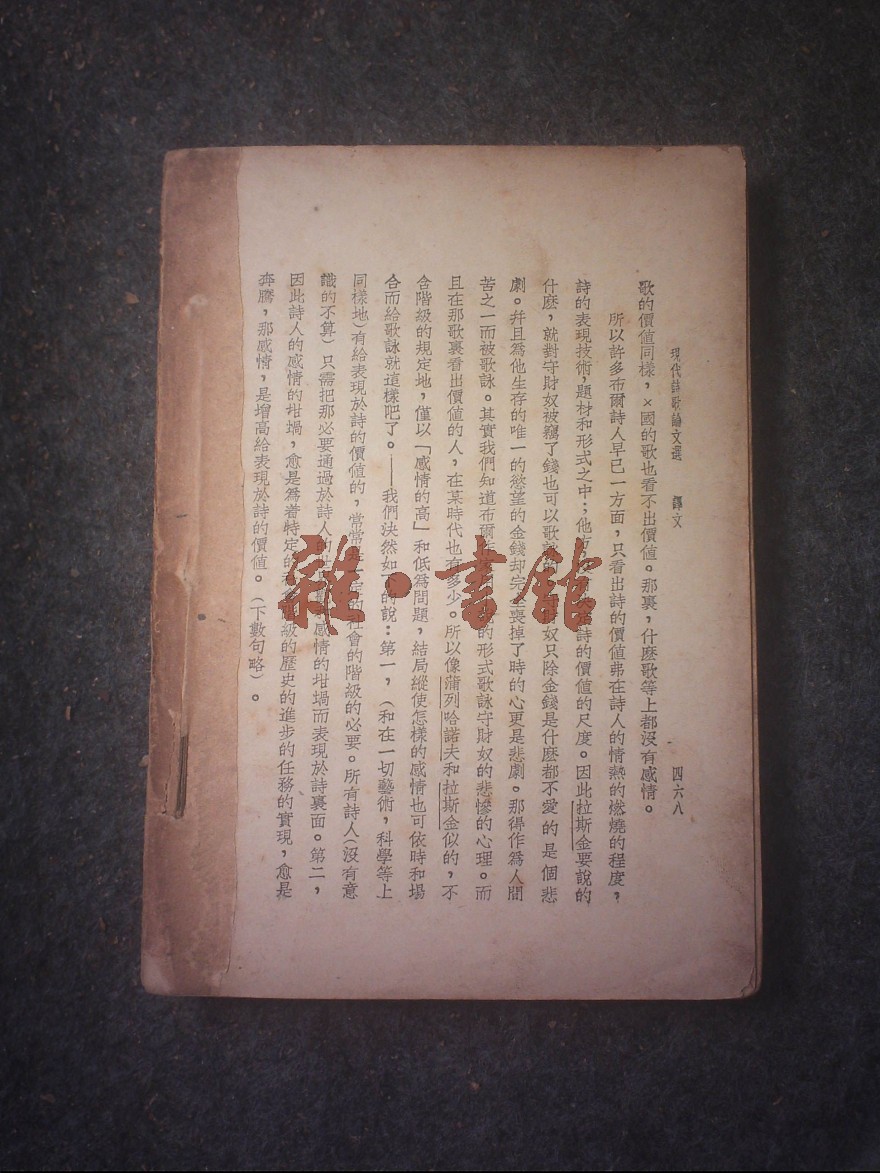 現代詩歌論文選 譯文 四六八
歌的價值同樣，×國的歌也看不出價值。那裏，什麽歌等上都沒有感情。
所以許多布爾詩人早已一方面，只看出詩的價值弗在詩人的情熱的燃燒的程度，
詩的表現技術，題材和形式之中；他方 詩的價值的尺度。因此拉斯金要說的
什麽，就對守財奴被竊了錢也可以歌詠 奴只除金錢是什麽都不愛的是個悲
劇。幷且爲他生存的唯一的慾望的金錢却完全喪掉了時的心更是悲劇。那得作爲人間
苦之一而被歌詠。其實我們知道布爾 的形式歌詠守財奴的悲慘的心理。而
且在那歌裏看出價值的人，在某時代也有多少。所以像蒲列哈諾夫和拉斯金似的，不
含階級的規定地，僅以「感情的高」和低爲問題，結局縱使怎樣的感情也可依時和場
合而給歌詠就這樣吧了。——我們決然如下的說：第一，（和在一切藝術，科學等上
同樣地）有給表現於詩的價值的，常常是一定的社會的階級的必要。所有詩人（沒有意
識的不算）只需把那必要通過於詩人的 感情的坩堝而表現於詩裏面。第二，
因此詩人的感情的坩堝，愈是爲着特定的 級的歷史的進步的任務的實現，愈是
奔騰，那感情，是增高給表現於詩的價值。（下數句略）。
雜·書館